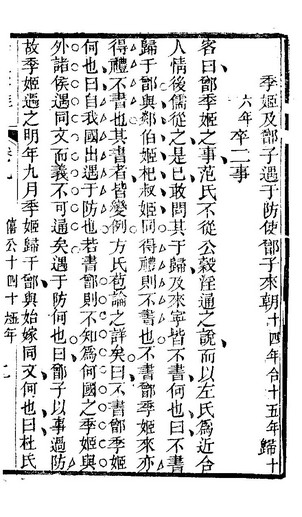 季姬及鄫子遇于防使鄫子來朝十四年合十五年歸十
六年卒二事
客曰鄫季姬之事范氏不從公穀淫通之說而以左氏爲近合
人情後儒從之是已敢問其于歸及來寧皆不書何也曰不書
歸于鄫與鄰伯姬杞叔姬同得禮則不書也不書鄫季姬來亦
得禮不書也其書者皆變例方氏苞論之詳矣曰不書鄫季姬
何也曰自我國出遇于防也若書鄫則不知為何國之季姬與
外諸侯遇同文而義不可通矣遇于防何也曰鄫子以事過防
故季姬遇之明年九月季姬歸于鄫與始嫁同文何也曰杜氏
僖公十四十五年